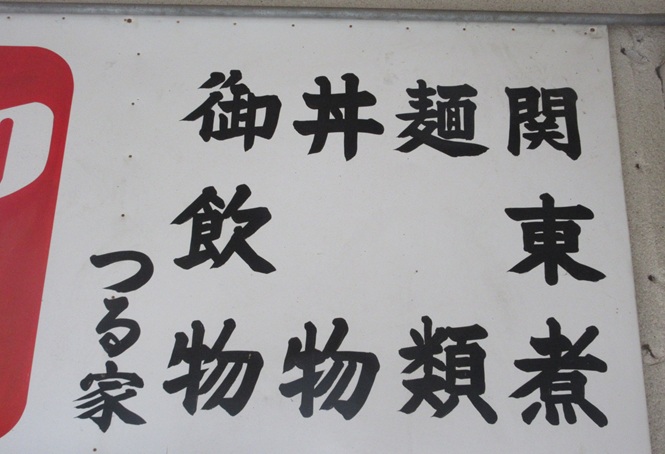 関東煮
麺類
丼物
御飲物
つる家